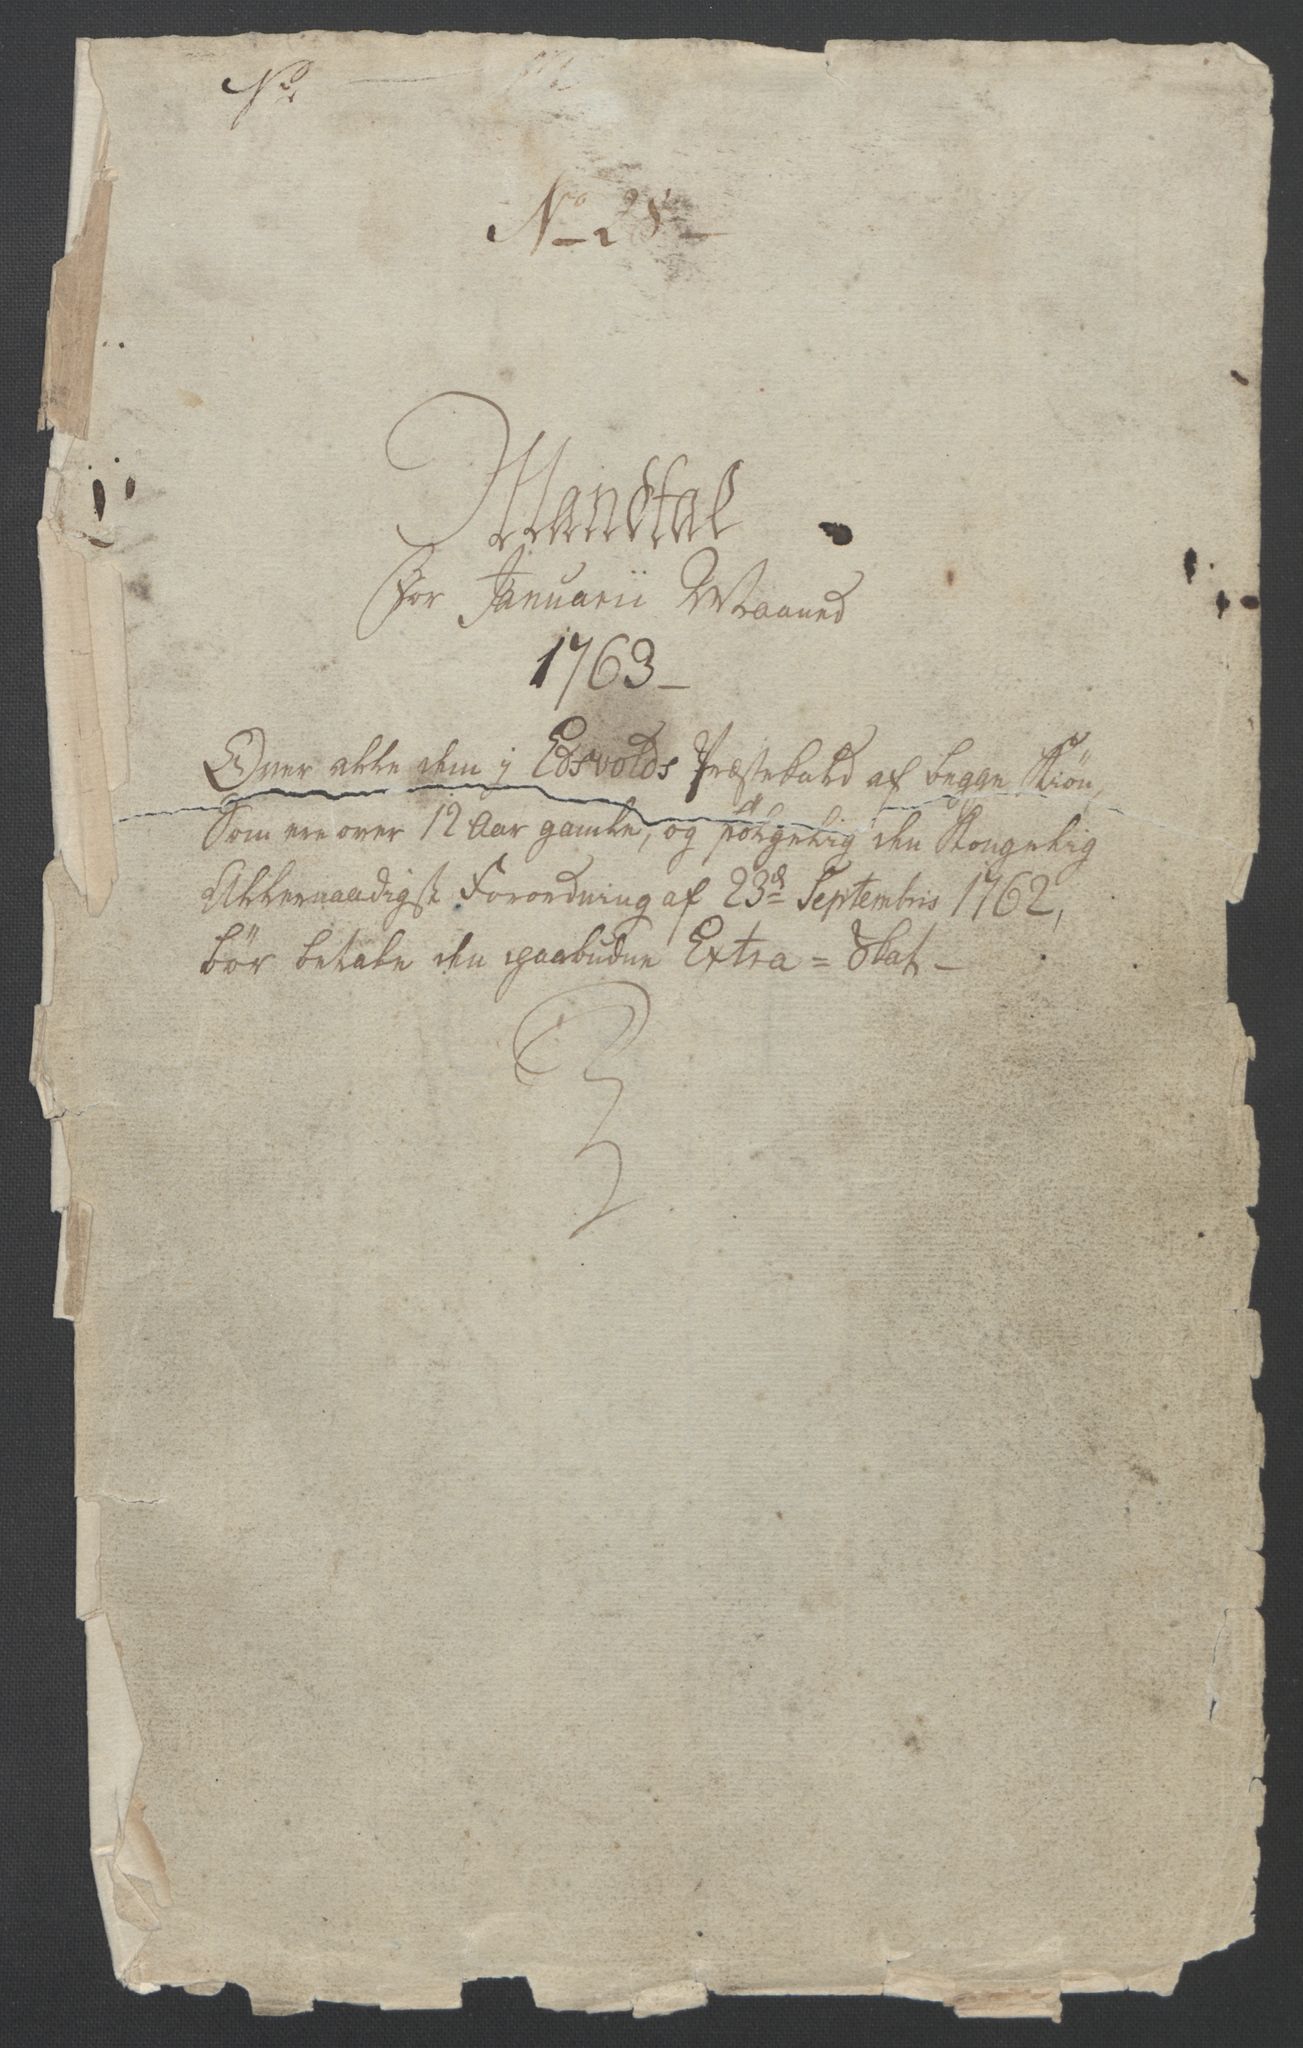 No
No 28
Mandtal
For Januarii Maaned
1763
Over alle dem j Edsvolds Præstekald af begge Kiön,
Som ere over 12 Aar gamle, og fölgelig den Kongelig
Allernaadigst Forordning af 23de Septembris 1762,
bör betale den paabudne Extra = Skat